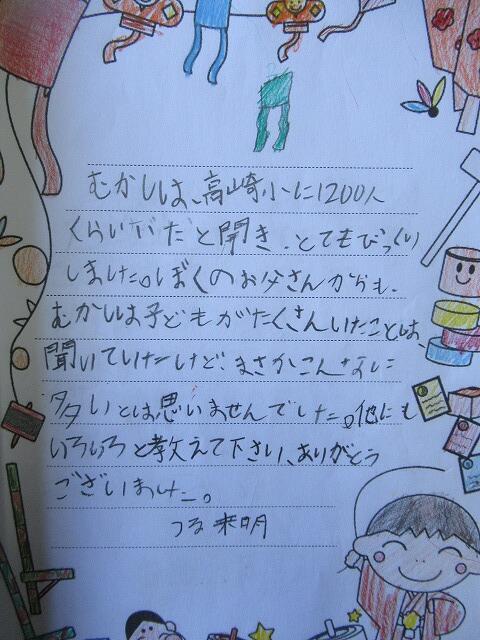 むかしは、高崎小に1200人
くらいだと聞き、とてもびっくり
しました。ぼくのお父さんからも、
むかしは子どもがたくさんいたことは
聞いていたけど、まさかこんなに
多いとは思いませんでした。他にも
いろいろと教えて下さい、ありがとう
ございました。
つる 来明